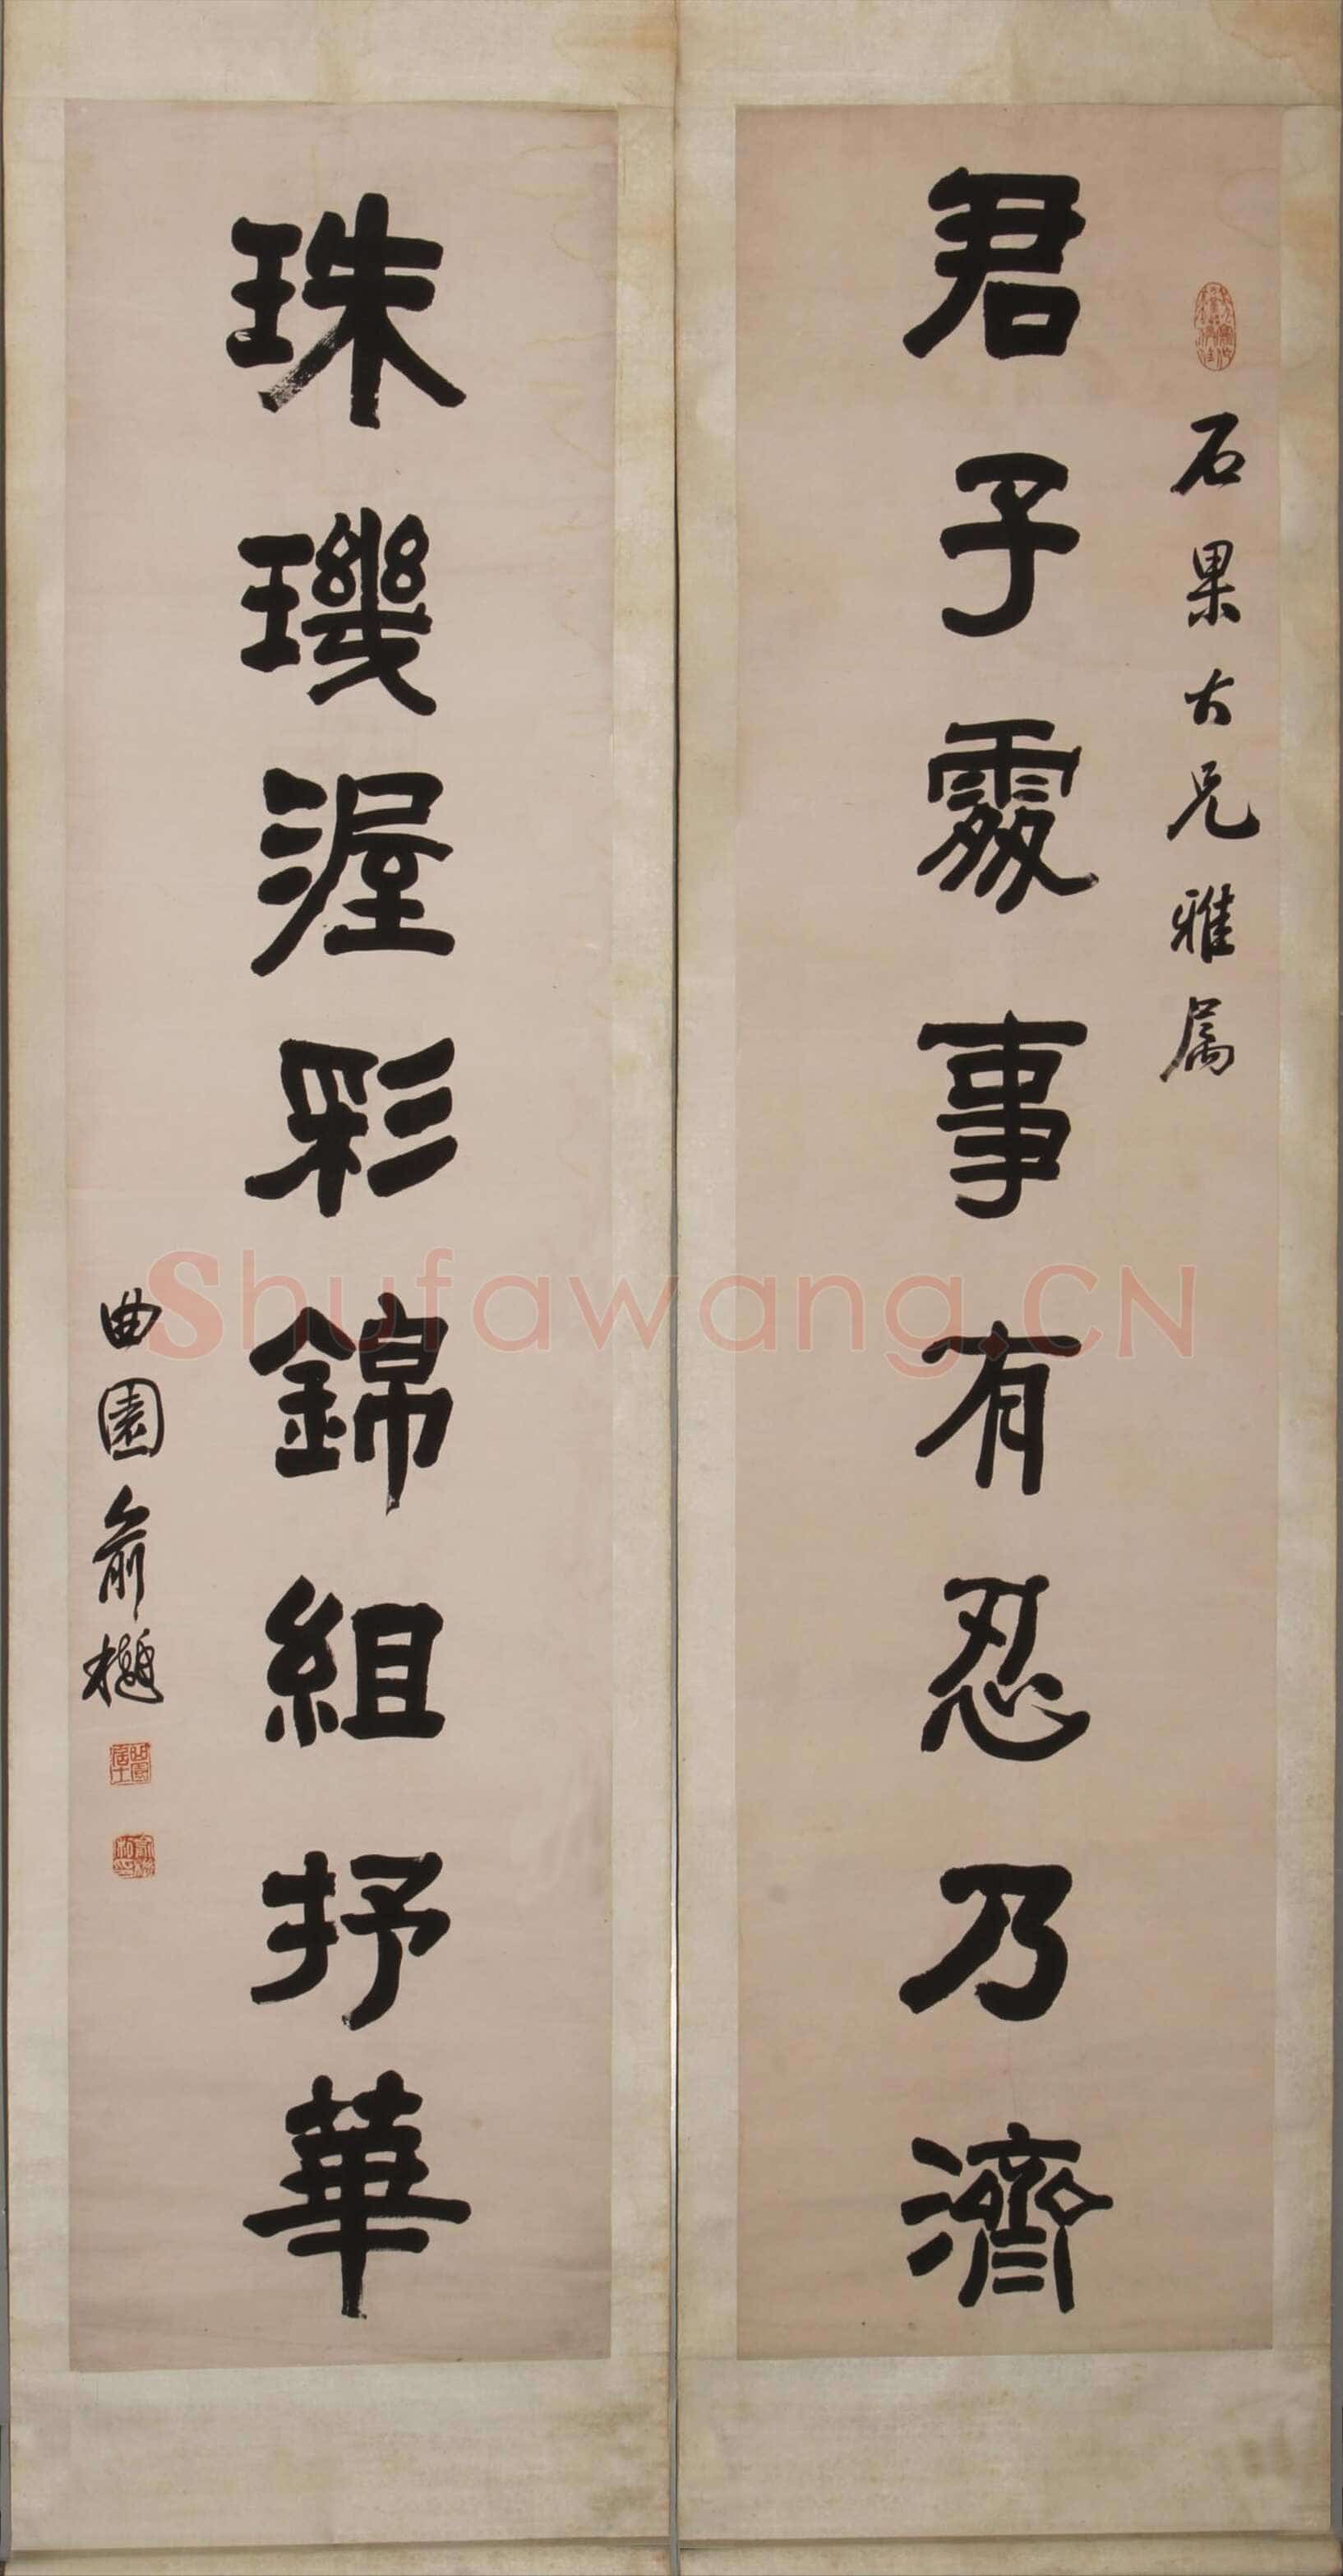 石果大兄雅属
君子處事有忍乃濟
珠璣渥彩錦組抒華
曲園俞樾
Shufawang.CN